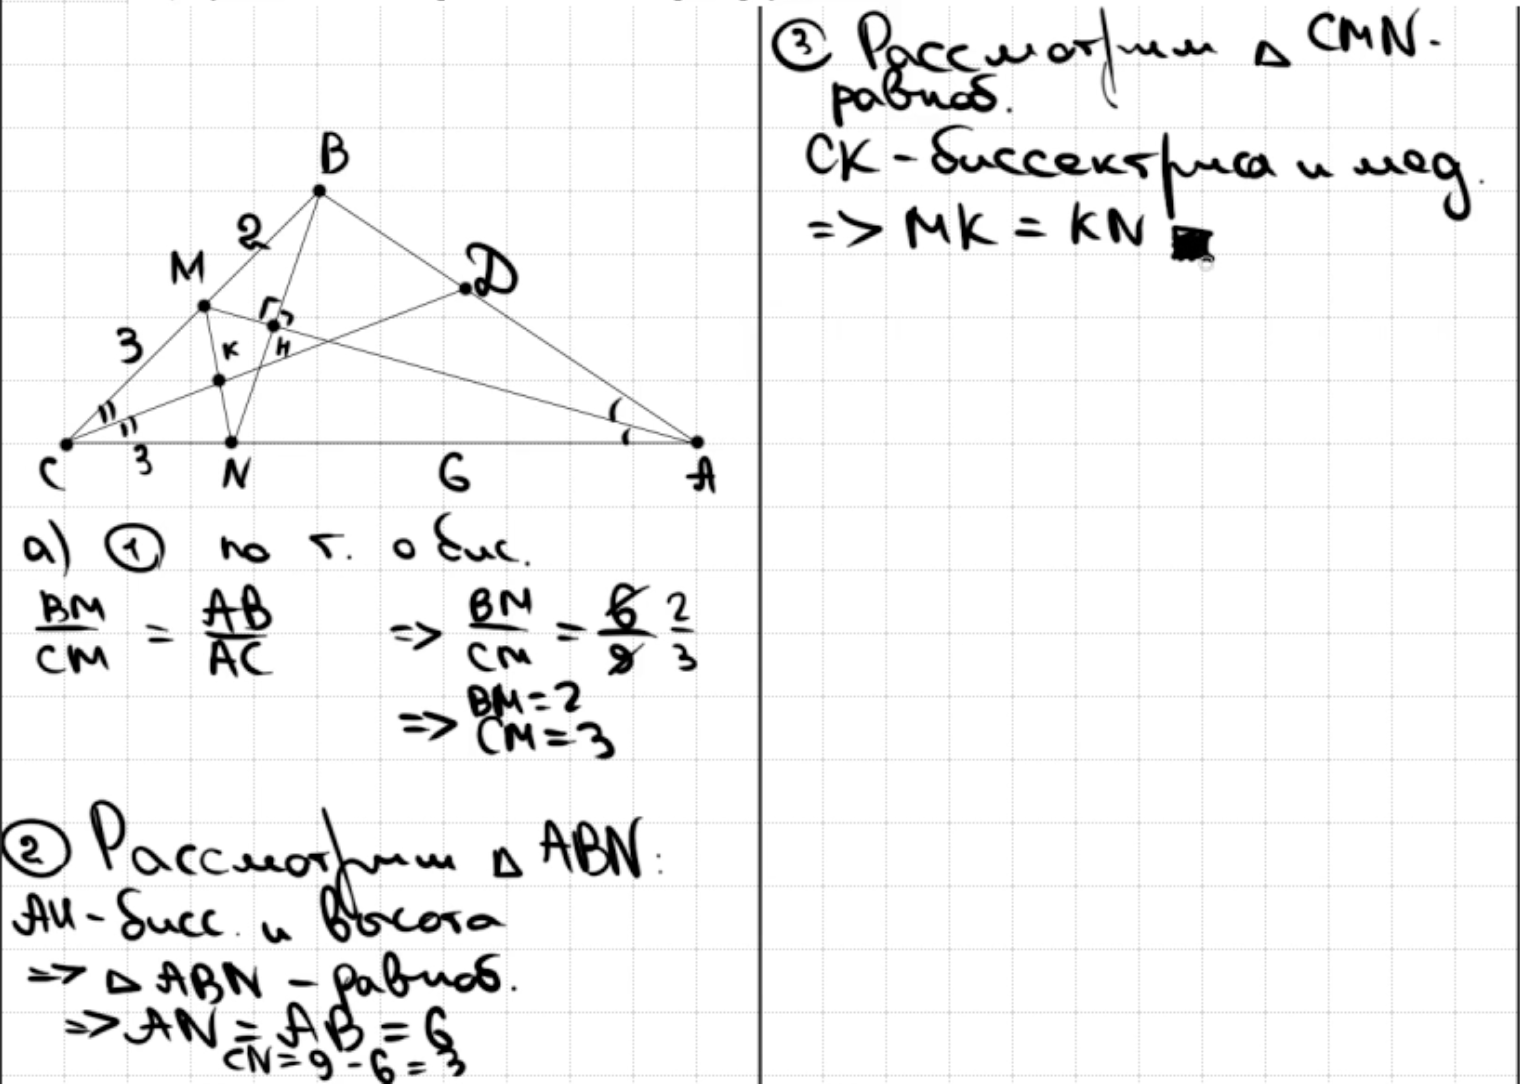 B
2
M
D
3
K
H
C
3
N
6
A
а) ① по т. о бис.
BM/CM = AB/AC => BM/CM = 6/9 2/3
=> BM = 2
CM = 3
② Рассмотрим △ ABN:
AH - бисс. и высота
=> △ ABN - равноб.
=> AN = AB = 6
CN = 9 - 6 = 3
③ Рассмотрим △ CMN.
равноб.
CK - биссектриса и мед.
=> MK = KN